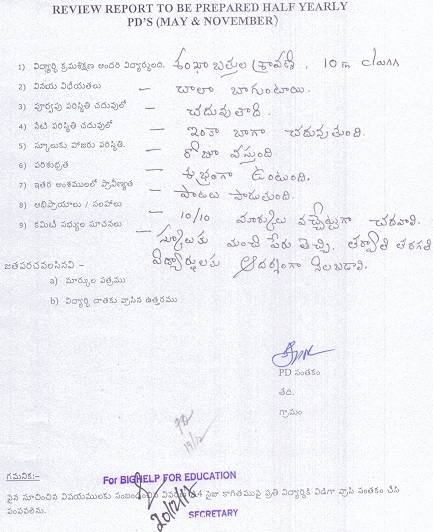 REVIEW REPORT TO BE PREPARED HALF YEARLY
PD'S (MAY & NOVEMBER)
1) విద్యార్థి క్రమశిక్షణ అందరి విద్యార్థులది. శంఖాబత్తుల శ్రావణి, 10th class
2) వినయ విధేయతలు — చాలా బాగుంటాయి.
3) పూర్వపు పరిస్థితి చదువులో — చదువుతాది.
4) నేటి పరిస్థితి చదువులో — ఇంకా బాగా చదువుతుంది.
5) స్కూలుకు హాజరు పరిస్థితి. — రోజూ వస్తుంది
6) పరిశుభ్రత — శుభ్రంగా ఉంటుంది.
7) ఇతర అంశములలో ప్రావీణ్యత — పాటలు పాడుతుంది.
8) అభిప్రాయాలు / సలహాలు — 10/10 మార్కులు వచ్చేట్టుగా చదవాలి.
9) కమిటీ సభ్యుల సూచనలు — స్కూలుకు మంచి పేరు తెచ్చి, తర్వాతి తరగతి
విద్యార్థులకు ఆదర్శంగా నిలబడాలి.
జతపరచవలసినవి –
a) మార్కుల పత్రము
b) విద్యార్థి దాతకు వ్రాసిన ఉత్తరము
PD సంతకం
తేది.
గ్రామం
PD
19/12
గమనిక:–
For BIGHELP FOR EDUCATION
పైన సూచించిన విషయములకు సంబంధించిన వివరాలు A4 సైజు కాగితముపై ప్రతి విద్యార్థికి విడిగా వ్రాసి సంతకం చేసి
పంపవలెను.
20/12/12
SECRETARY